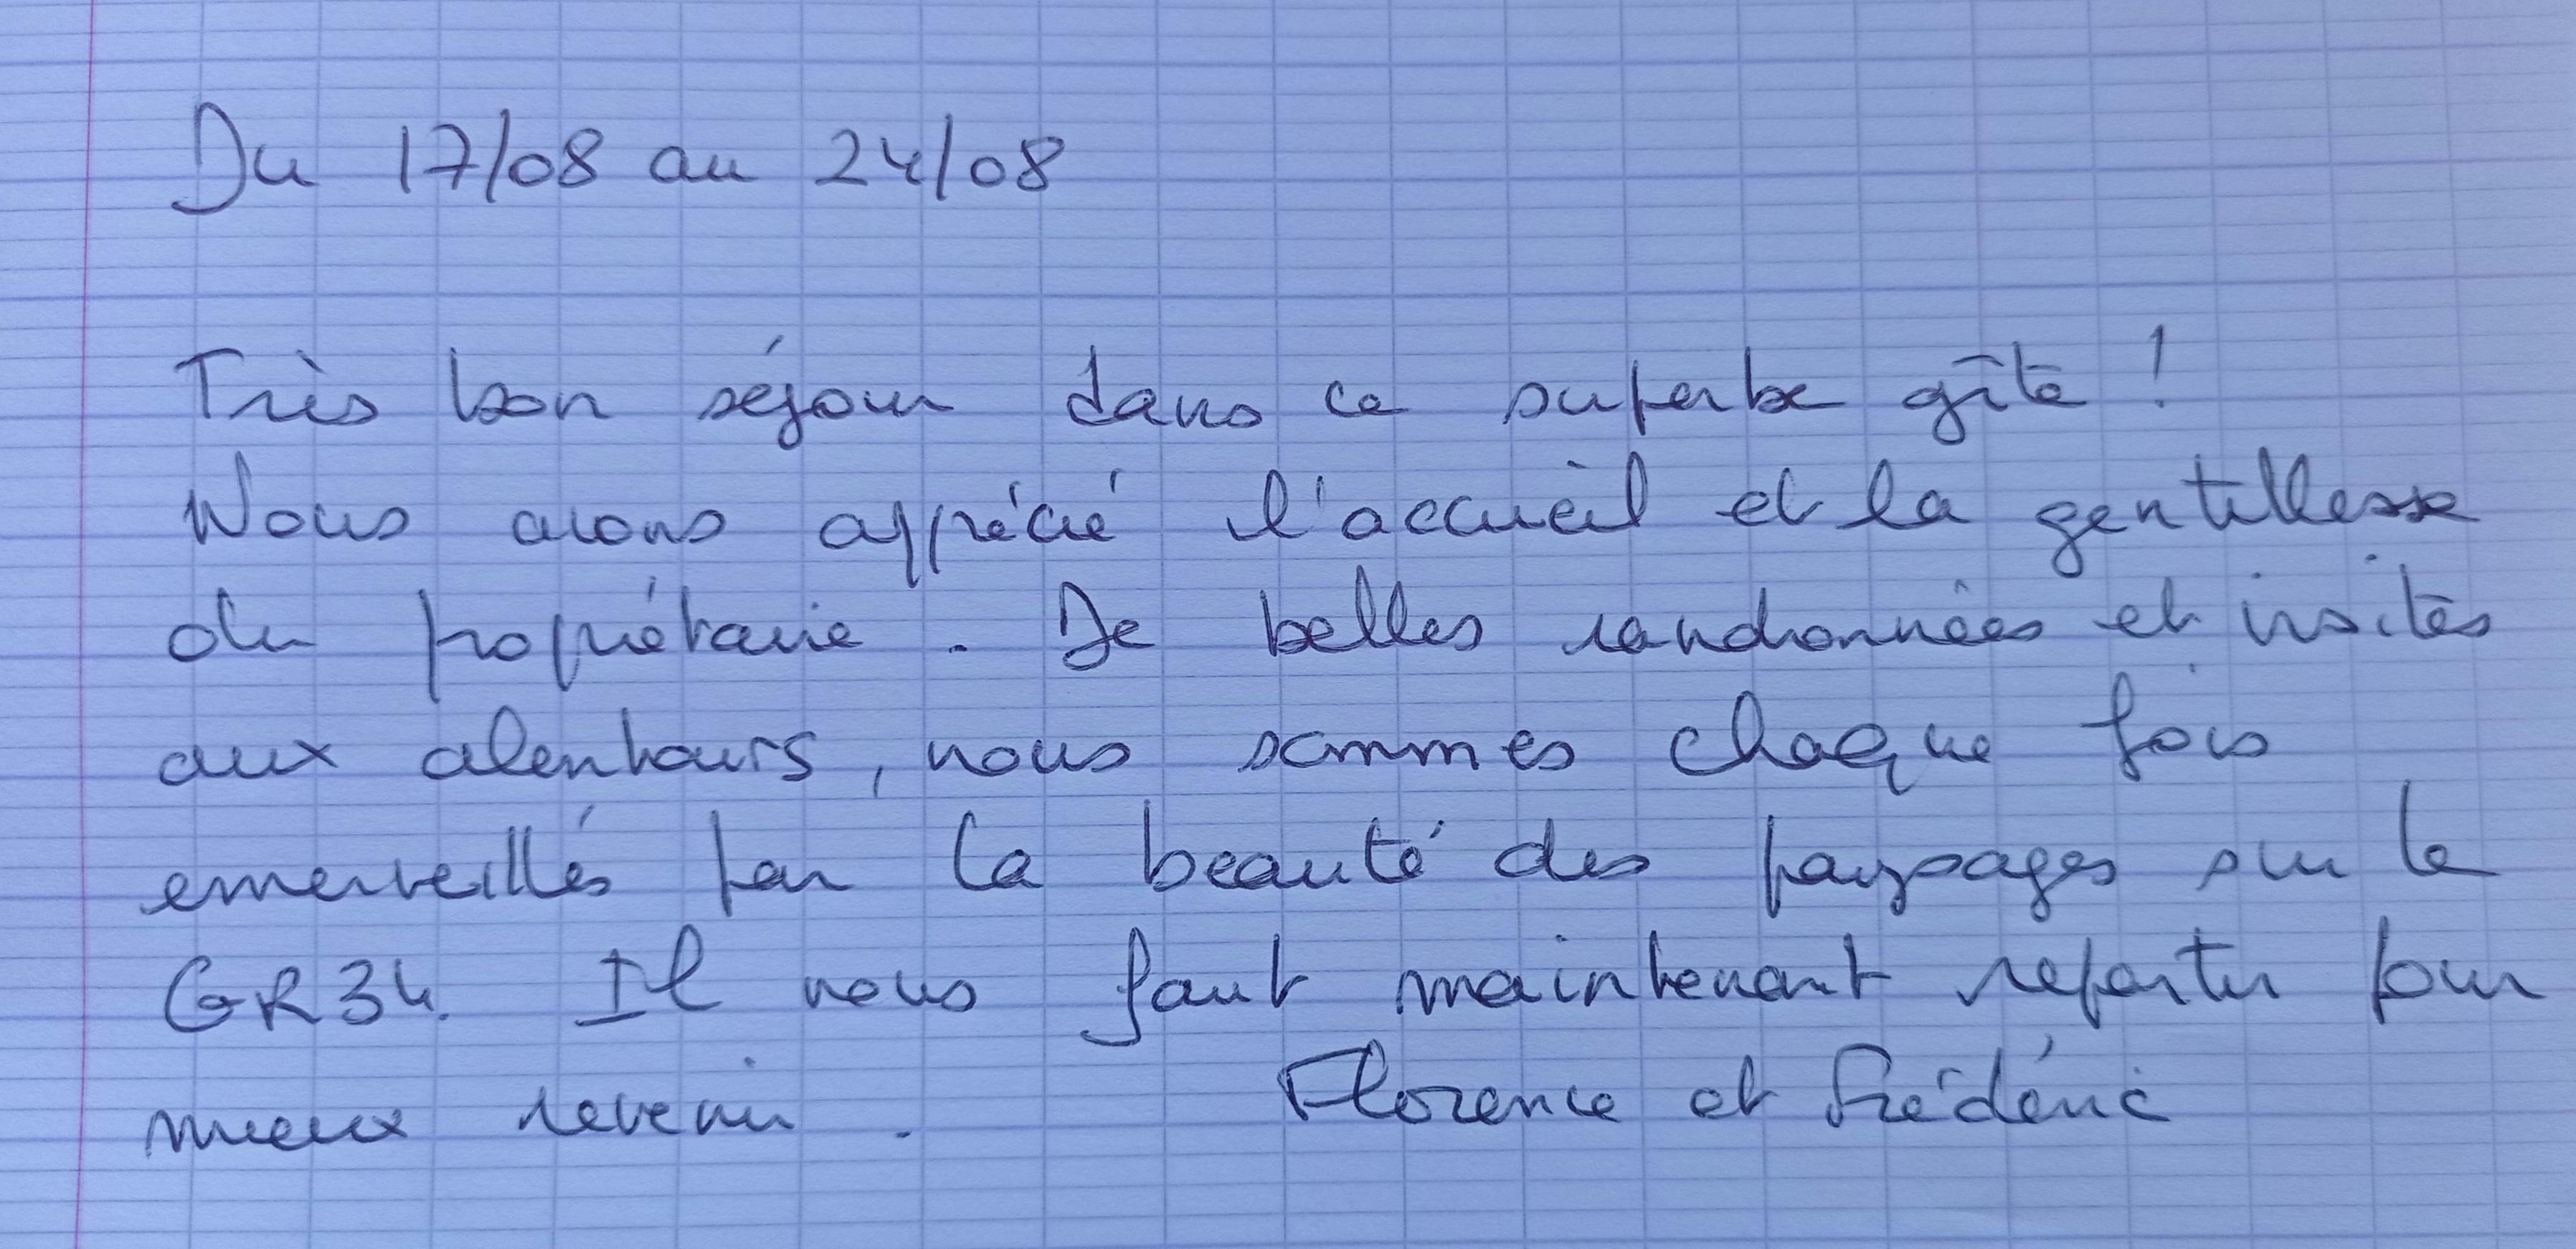 Du 17/08 au 24/08
Très bon séjour dans ce superbe gîte !
Nous avons apprécié l'accueil et la gentillesse
du propriétaire. De belles randonnées et visites
aux alentours, nous sommes chaque fois
emerveillés par la beauté des paysages sur le
GR34. Il nous faut maintenant repartir pour
mieux revenir. Florence et Frédéric